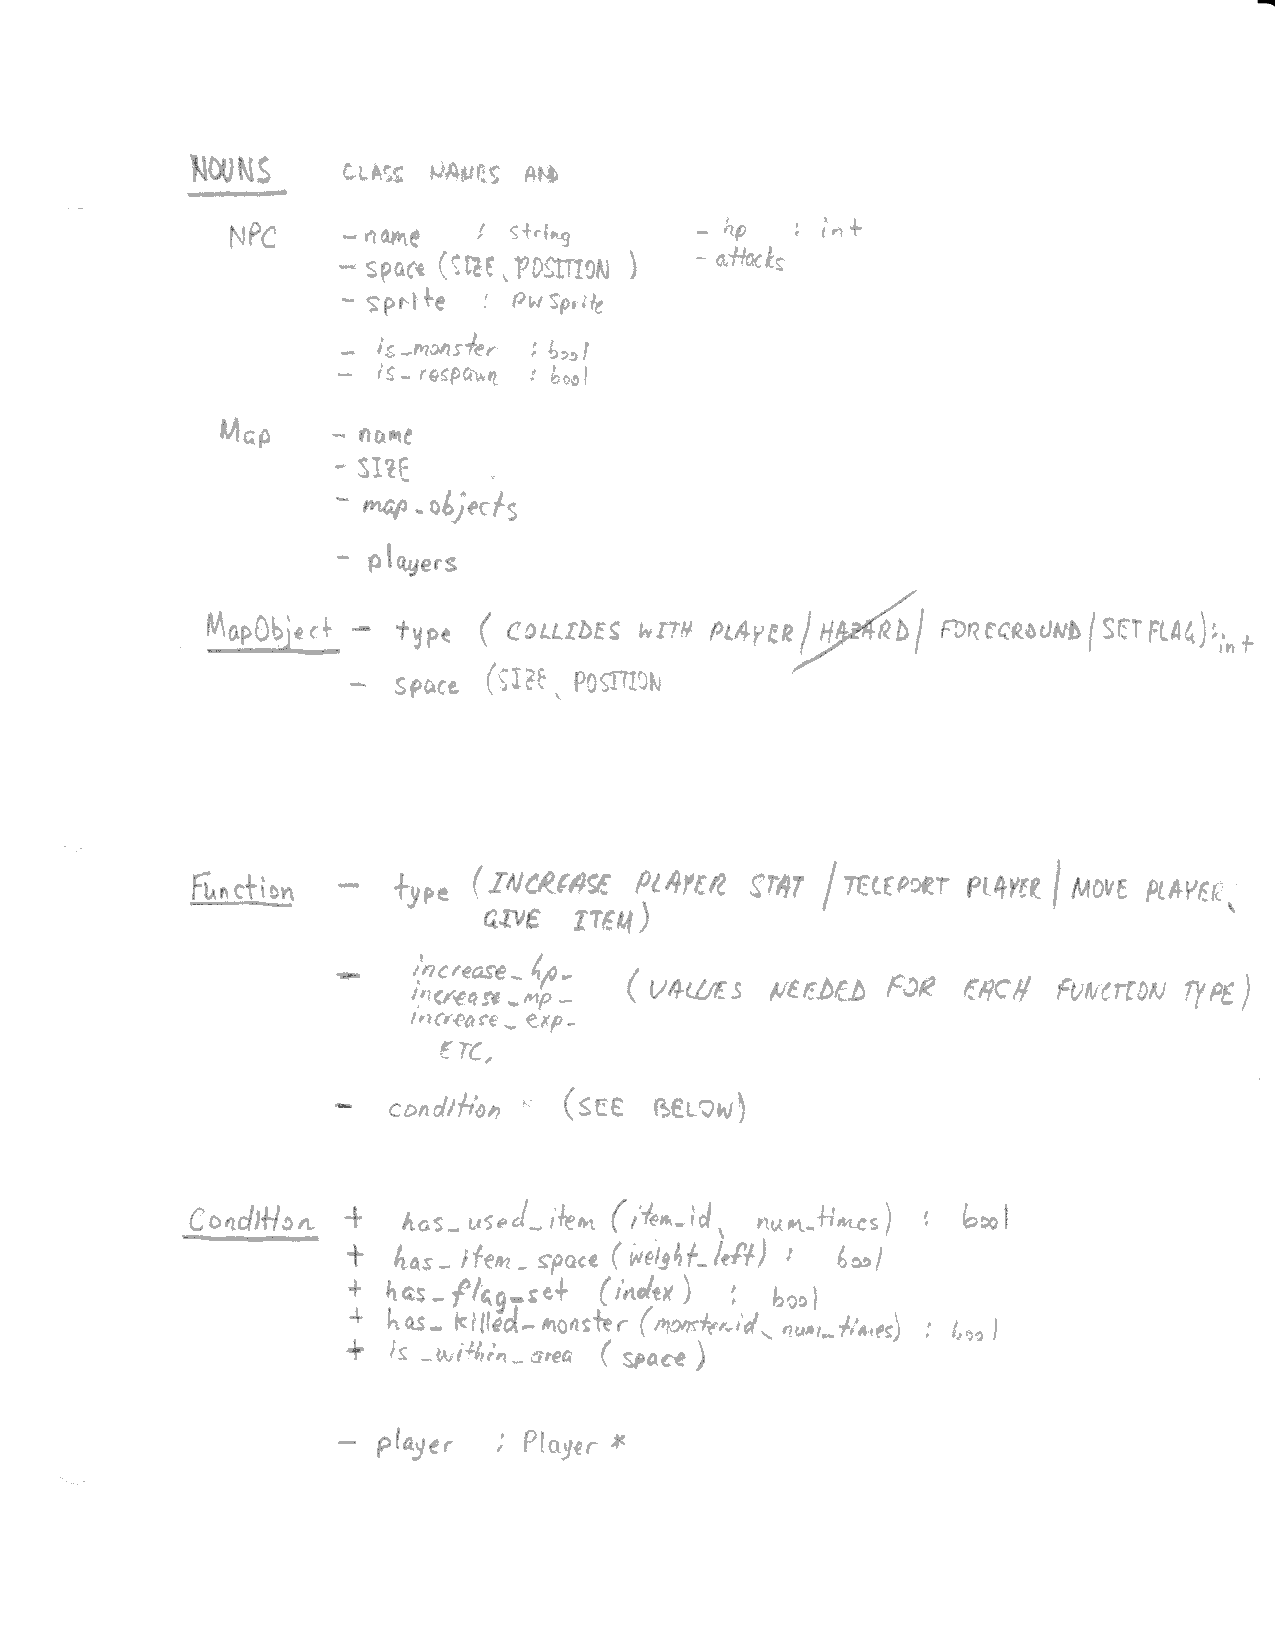 NOUNS CLASS NAMES AND
NPC - name : string - hp : int
- space (SIZE, POSITION) - attacks
- sprite : PWSprite
- is_monster : bool
- is_respawn : bool
Map - name
- SIZE
- map_objects
- players
MapObject - type (COLLIDES WITH PLAYER / HAZARD / FOREGROUND / SET FLAG) : int
- space (SIZE, POSITION
Function - type (INCREASE PLAYER STAT / TELEPORT PLAYER / MOVE PLAYER,
GIVE ITEM)
- increase_hp_
increase_mp_ (VALUES NEEDED FOR EACH FUNCTION TYPE)
increase_exp_
ETC.
- condition * (SEE BELOW)
Condition + has_used_item (item_id, num_times) : bool
+ has_item_space (weight_left) : bool
+ has_flag_set (index) : bool
+ has_killed_monster (monster_id, num_times) : bool
+ is_within_area (space)
- player : Player *